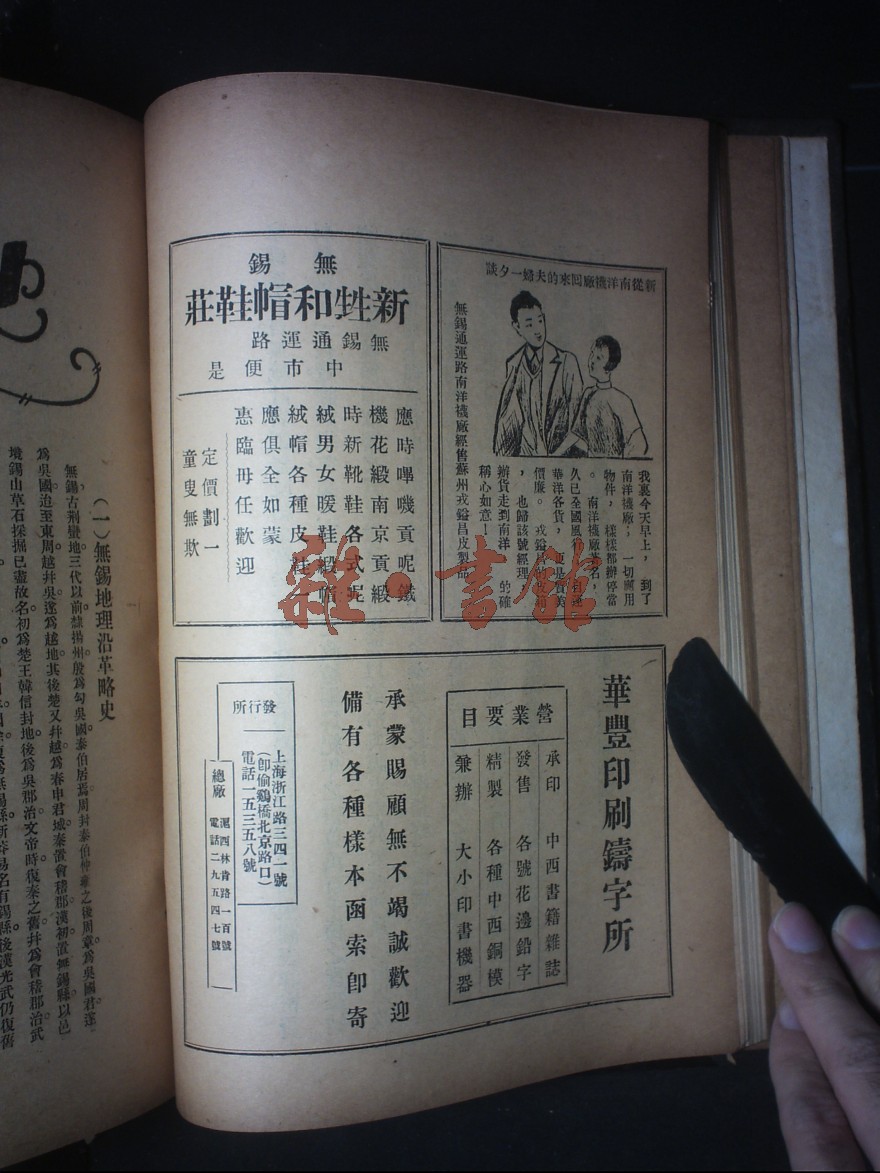 新從南洋襪廠回來的夫婦一夕談
我裏今天早上，到了
南洋襪廠；一切應用
物件，樣樣都辦停當
。南洋襪廠著名，
久已全國風
華洋各貨，更是貨美
價廉。戎鎰昌的皮箱
，也歸該號經理
辦貨走到南洋 的確
稱心如意！
無錫通運路南洋襪廠經售蘇州戎鎰昌皮製品
無錫
新甡和帽鞋莊
無錫通運路
中市便是
應時嗶嘰貢呢鐵
機花緞南京貢緞
時新靴鞋各式呢
絨男女暖鞋緞帽
絨帽各種皮鞋一
應俱全如蒙
惠臨毋任歡迎
定價劃一
童叟無欺
華豐印刷鑄字所
營業要目
承印 中西書籍雜誌
發售 各號花邊鉛字
精製 各種中西銅模
兼辦 大小印書機器
承蒙賜顧無不竭誠歡迎
備有各種樣本函索即寄
發行所
上海浙江路三四一號
(卽偷鷄橋北京路口)
電話一五三五八號
總廠 滬西林肯路一百號
電話二九五四七號
(一)無錫地理沿革略史
無錫古荆蠻地三代以前隸揚州殷爲勾吳國泰伯居焉周封泰伯仲雍之後周章爲吳國君遂
爲吳國迨至東周越幷吳遂爲越地其後楚又幷越爲春申君城秦置會稽郡漢初置無錫縣以邑
境錫山草石採掘已盡故名初爲楚王韓信封地後爲吳郡治文帝時復秦之舊幷爲會稽郡治武
名有錫縣後漢光武仍復舊
雜·書館